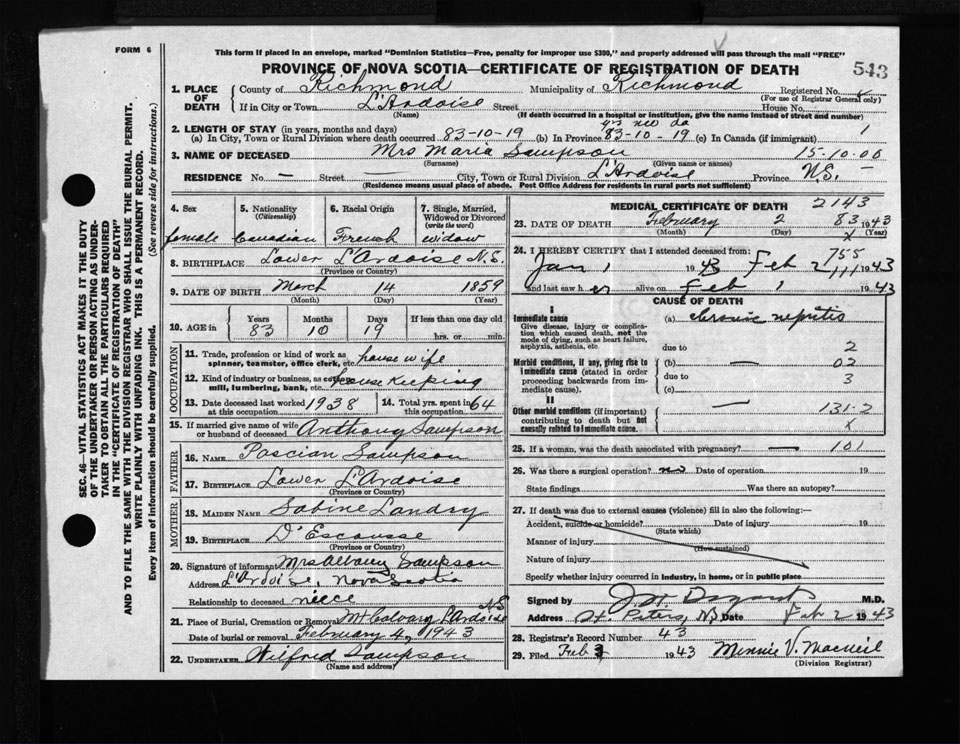 FORM 6
This form if placed in an envelope, marked "Dominion Statistics—Free, penalty for improper use $300," and properly addressed will pass through the mail "FREE"
PROVINCE OF NOVA SCOTIA—CERTIFICATE OF REGISTRATION OF DEATH
543
SEC. 46—VITAL STATISTICS ACT MAKES IT THE DUTY
OF THE UNDERTAKER OR PERSON ACTING AS UNDER-
TAKER TO OBTAIN ALL THE PARTICULARS REQUIRED
IN THE "CERTIFICATE OF REGISTRATION OF DEATH"
AND TO FILE THE SAME WITH THE DIVISION REGISTRAR WHO SHALL ISSUE THE BURIAL PERMIT.
WRITE PLAINLY WITH UNFADING INK. THIS IS A PERMANENT RECORD.
Every item of information should be carefully supplied. (See reverse side for instructions.)
1. PLACE OF DEATH
County of Richmond Municipality of Richmond Registered No.
(For use of Registrar General only)
If in City or Town L'Ardoise Street House No.
(Name) (If death occurred in a hospital or institution, give the name instead of street and number)
2. LENGTH OF STAY (in years, months and days) yrs mo da
(a) In City, Town or Rural Division where death occurred 83-10-19 (b) In Province 83-10-19 (c) In Canada (if immigrant) 1
3. NAME OF DECEASED Mrs Maria Sampson 15-10-00
(Surname) (Given name or names)
RESIDENCE No. — Street — City, Town or Rural Division L'Ardoise Province N.S.
(Residence means usual place of abode. Post Office Address for residents in rural parts not sufficient)
4. Sex female
5. Nationality (Citizenship) Canadian
6. Racial Origin French
7. Single, Married, Widowed or Divorced (write the word) widow
8. BIRTHPLACE Lower L'Ardoise N.S.
(Province or Country)
9. DATE OF BIRTH March 14 1859
(Month) (Day) (Year)
10. AGE in Years Months Days If less than one day old
83 10 19 hrs. or min.
OCCUPATION
11. Trade, profession or kind of work as
spinner, teamster, office clerk, etc. house wife
12. Kind of industry or business, as cotton
mill, lumbering, bank, etc. House Keeping
13. Date deceased last worked at this occupation 1938
14. Total yrs. spent in this occupation 64
15. If married give name of wife or husband of deceased Anthony Sampson
FATHER
16. NAME Pascian Sampson
17. BIRTHPLACE Lower L'Ardoise
(Province or Country)
MOTHER
18. MAIDEN NAME Sabine Landry
19. BIRTHPLACE D'Escousse
(Province or Country)
20. Signature of informant Mrs Albany Sampson
Address L'Ardoise, Nova Scotia
Relationship to deceased niece
21. Place of Burial, Cremation or Removal Mt Calvary L'Ardoise NS
Date of burial or removal February 4, 1943
22. UNDERTAKER Wilfred Sampson
(Name and address)
MEDICAL CERTIFICATE OF DEATH 2143
23. DATE OF DEATH February 2 83 1943
(Month) (Day) (Year)
24. I HEREBY CERTIFY that I attended deceased from: 755
Jan 1 1943 Feb 2 1943
and last saw her alive on Feb 1 1943
CAUSE OF DEATH
I
Immediate cause
Give disease, injury or complica-
tion which caused death, not the
mode of dying, such as heart failure,
asphyxia, asthenia, etc.
(a) chronic nephritis
due to 2
Morbid conditions, if any, giving rise to
immediate cause (stated in order
proceeding backwards from im-
mediate cause).
(b) — 02
due to 3
(c)
II
Other morbid conditions (if important)
contributing to death but not
causally related to immediate cause.
— 131-2
x
25. If a woman, was the death associated with pregnancy? — 101
26. Was there a surgical operation? no Date of operation 19
State findings Was there an autopsy?
27. If death was due to external causes (violence) fill in also the following:—
Accident, suicide or homicide? Date of injury 19
(State which)
Manner of injury
(How sustained)
Nature of injury
Specify whether injury occurred in industry, in home, or in public place
Signed by M.D.
Address St. Peters, NS Date Feb 2 1943
28. Registrar's Record Number 43
29. Filed Feb 3 1943 Minnie V. MacNeil
(Division Registrar)